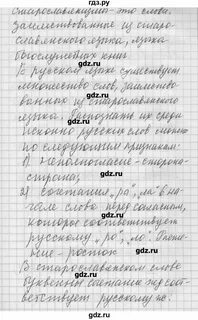 Старославянизмы - это слова,
заимствованные из старо-
славянского языка, языка
богослужебных книг.
В русском языке существует
множество слов, заимство-
ванных из старославянского
языка. Распознать их среди
исконно русских слов можно
по следующим признакам:
1) Неполногласие - сторона-
страна;
2) сочетания "ра", "ла" в на-
чале слова перед согласным,
которое соответствует
русскому "ро", "ло".
ние - росток
В старославянском слове
буквенные сочетания жд соот-
ветствует русскому ж.